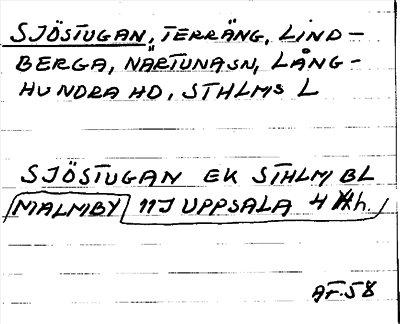 SJÖSTUGAN, TERRÄNG, LIND-
BERGA, NÄRTUNA SN, LÅNG-
HUNDRA HD, STHLMS L
SJÖSTUGAN EK STHLM BL
MALMBY 11J UPPSALA 4 h.
AF. 58